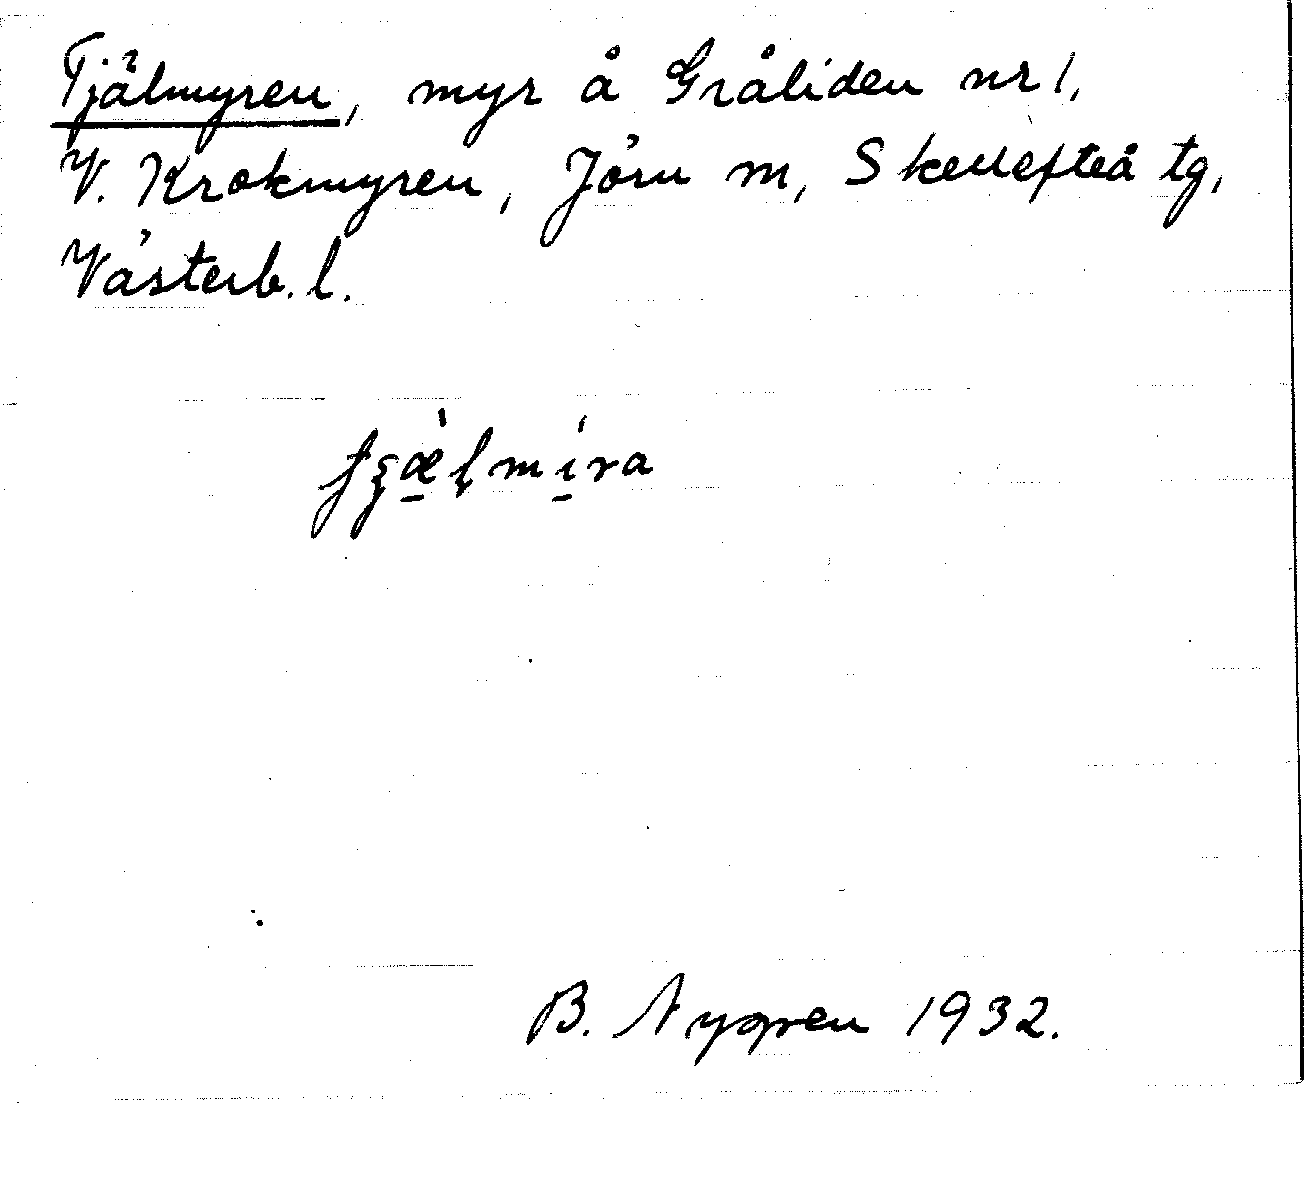 Tjälmyren, myr å Gråliden nr 1,
V. Krokmyren, Jörn m, Skellefteå tg,
Västerb. l.
B. Nygren 1932.